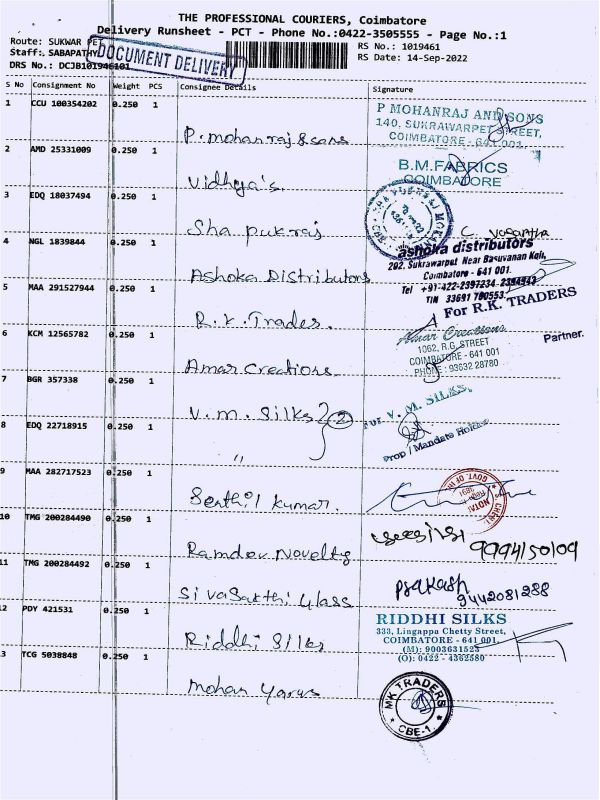 THE PROFESSIONAL COURIERS, Coimbatore
Delivery Runsheet - PCT - Phone No.:0422-3505555 - Page No.:1
Route: SUKWAR PET
Staff: SABAPATHY
DRS No.: DCJB101946101
DOCUMENT DELIVERY
RS No.: 1019461
RS Date: 14-Sep-2022
S No Consignment No Weight PCS Consignee Details Signature
1 CCU 100354202 0.250 1
P. mohanraj & sons
P MOHANRAJ AND SONS
140, SUKRAWARPET STREET,
COIMBATORE - 641 001
2 AMD 25331009 0.250 1
Vidhya's
B.M.FABRICS
COIMBATORE
3 EDQ 18037494 0.250 1
Sha pukraj
C. Vasantha
4 NGL 1839844 0.250 1
Ashoka Distributors
ashoka distributors
202, Sukrawarpet Near Basuvanan Koil,
Coimbatore - 641 001.
Tel +91-422-2397234 2394943
TIN 33691780553
5 MAA 291527944 0.250 1
R.K. Trades.
For R.K. TRADERS
Partner.
6 KCM 12565782 0.250 1
Amar Creations
Amar Creations
1062, R.G. STREET
COIMBATORE - 641 001
PHONE : 93632 28780
7 BGR 357338 0.250 1
V. m. Silks 2
For V. M. SILKS,
Prop / Mandate Holder
8 EDQ 22718915 0.250 1
"
9 MAA 282717523 0.250 1
Senthil kumar.
NOTARY
GOVT. OF
10 TMG 200284490 0.250 1
Ramdev Novelty
9994150109
11 TMG 200284492 0.250 1
Sivasakthi Glass
Prakash
9442081288
12 PDY 421531 0.250 1
Riddhi Silks
RIDDHI SILKS
333, Lingappa Chetty Street,
COIMBATORE - 641 001.
(M): 9003631523
(O): 0422 - 4362580
3 TCG 5038848 0.250 1
Mohan Yarns
MK TRADERS
CBE-1